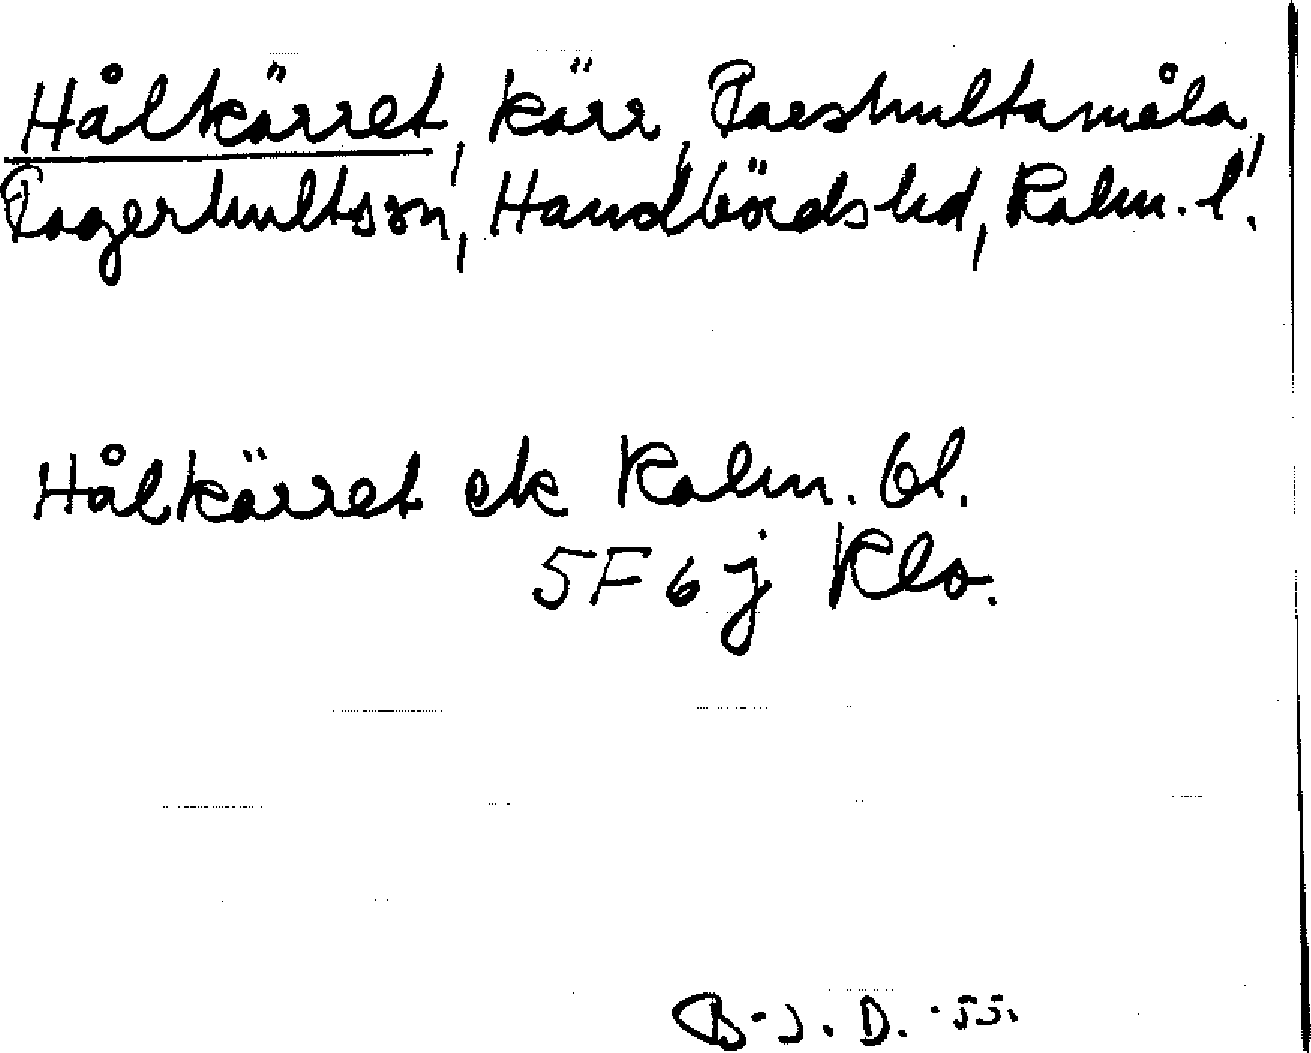 Hålkärret, kärr, Fareshultamåla,
Fagerhults sn, Handbörds hd, Kalm. l.
Hålkärret ek Kalm. bl.
5F 6 j Klo.
B-J. D. -55.